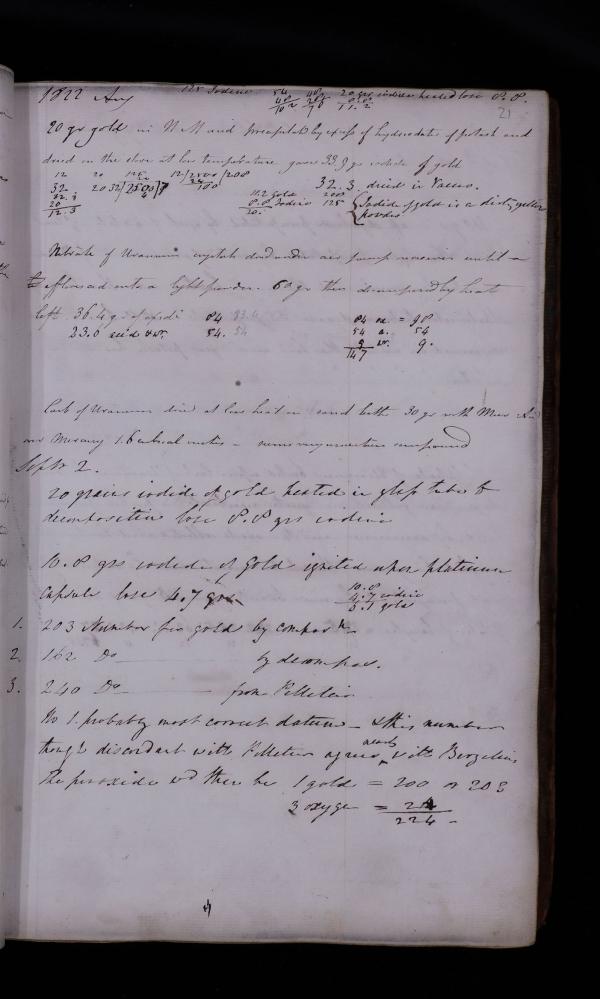 1822 Aug
125 Iodine
54
48
102
20 grs iodine heated lose 8.8.
8.8
11.2
21
20 gr gold in N M and precipitated by excess of hydriodate of potash and
dried on the stove at low temperature gave 33.9 grs iodide of gold
12 20 125 12/2500/208
32. 20 32/2500/7 100
32.3
20
12.3
11.2 gold 208
8.8 Iodine 125
20.
32.3 dried in Vacuo.
Iodide of gold is a dirty yellow
powder
Nitrate of Uranium crystals dried under air pump receiver until
effloresced into a light powder. 60 gr this decomposed by heat
left 36.4 g of oxide 84 83.4
23.6 acid & wr. 54. 54
84 = 98
54 a. 54
9 wr. 9.
147
Carb of Uranium dried at low heat in sand bath 30 gr with Mur Acid
over Mercury 1.6 cubical inches
compound
Septr 2.
20 grains iodide of gold heated in glass tube to
decomposition lose 8.8 grs iodine
10.8 grs iodide of gold ignited upon platinum
capsule lose 4.7 grs
10.8
4.7 iodine
6.1 gold
1. 203 Number for gold by compos n
2. 162 Do by decompos.
3. 240 Do from Pelletier
No 1. probably most correct datum & this number
though discordant with Pelletier agrees nearly with Berzelius
The peroxide wd then be 1 gold = 200 or 203
3 oxyge = 24
224